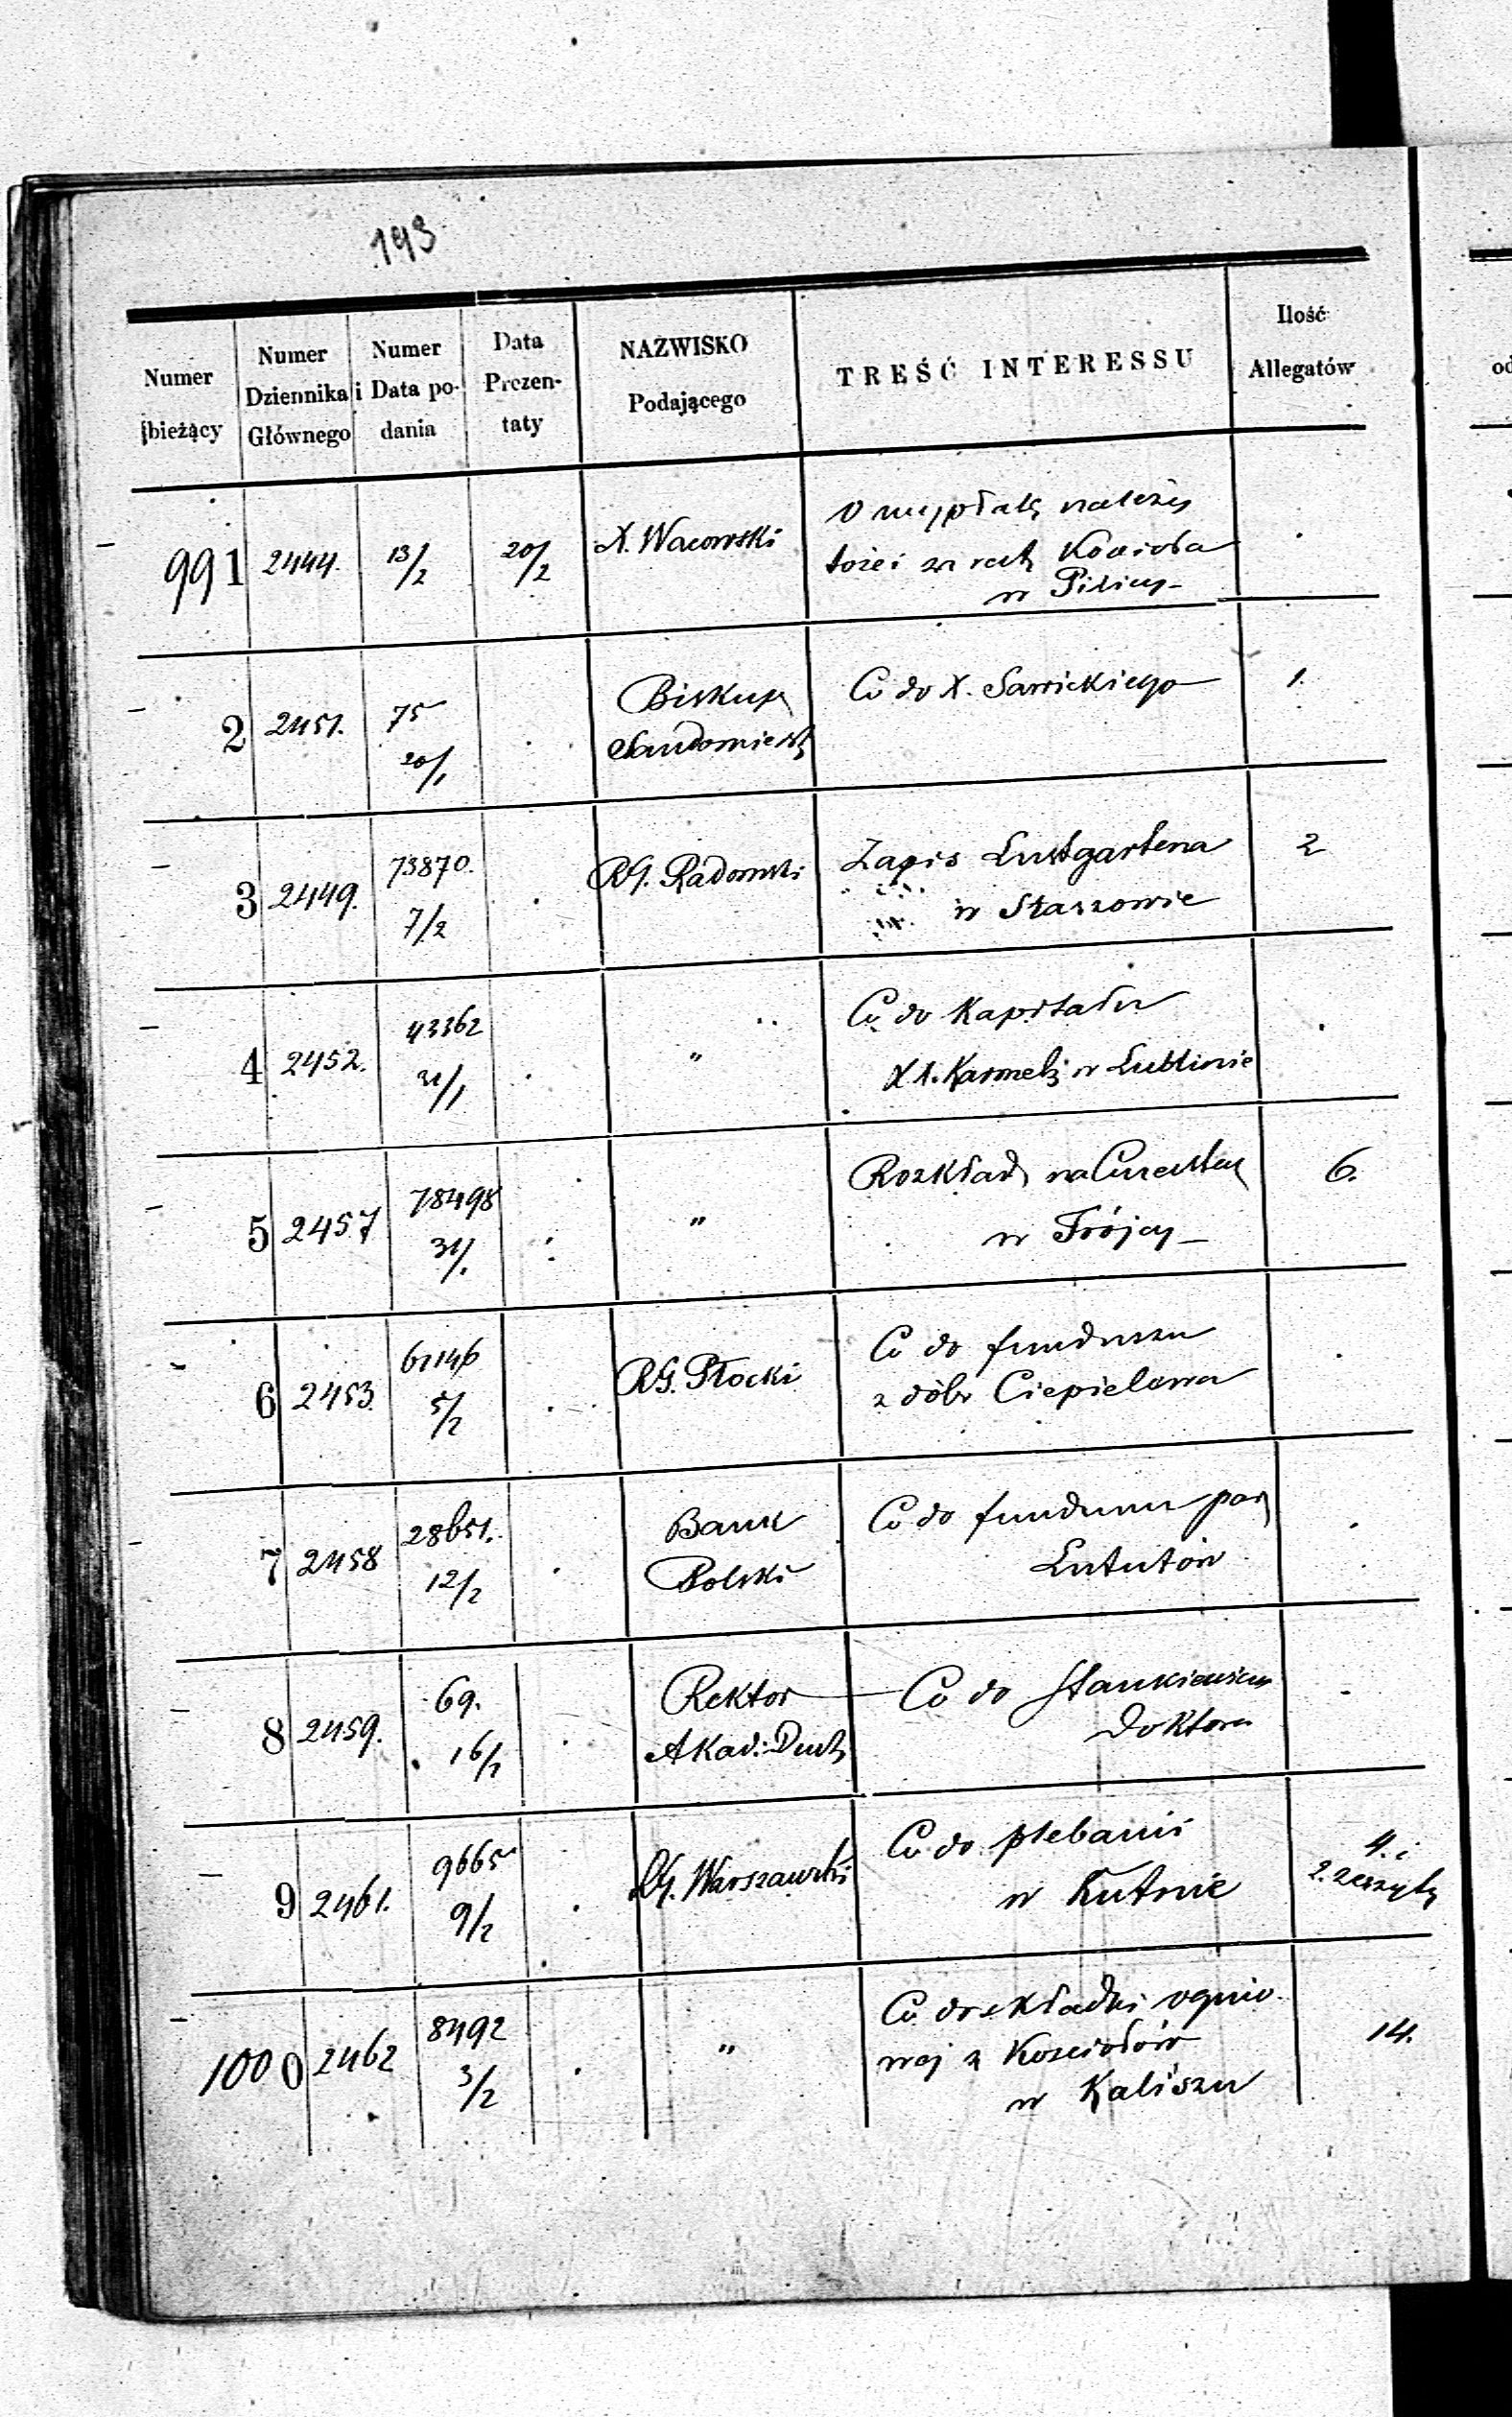 193
Numer bieżący | Numer Dziennika Głównego | Numer i Data podania | Data Prezentaty | NAZWISKO Podającego | TREŚĆ INTERESSU | Ilość Allegatów
991 2444. 13/2 20/2 X. Wacowski O wypłatę należy
tości za rest Kościoła
w Pilicy
2 2451. 75 Biskup Co do X. Sawickiego 1.
20/1 Sandomiersk
3 2449. 73870. RG. Radomski Zapis Lustgartena 2
7/2 w Staszowie
4 2452. 43362 " Co do Kapitału
31/1 XX. Karmeli w Lublinie
5 2457 78498 " Rozkład na 6.
31/1 w Trójcy
6 2453. 61146 RG. Płocki Co do funduszu
5/2 z dóbr Ciepielowa
7 2458 28651. Bank Co do funduszu par
12/2 Polski Lututów
8 2459. 69. Rektor Co do Stankiewicza
16/2 Akad: Duch Doktora
9 2461. 9665 RG. Warszawski Co do plebanii 4. i
9/2 w Kutnie 2. zeszyty
1000 2462 8492 " Co do składki ognio
3/2 wej z Kościołów 14.
w Kaliszu